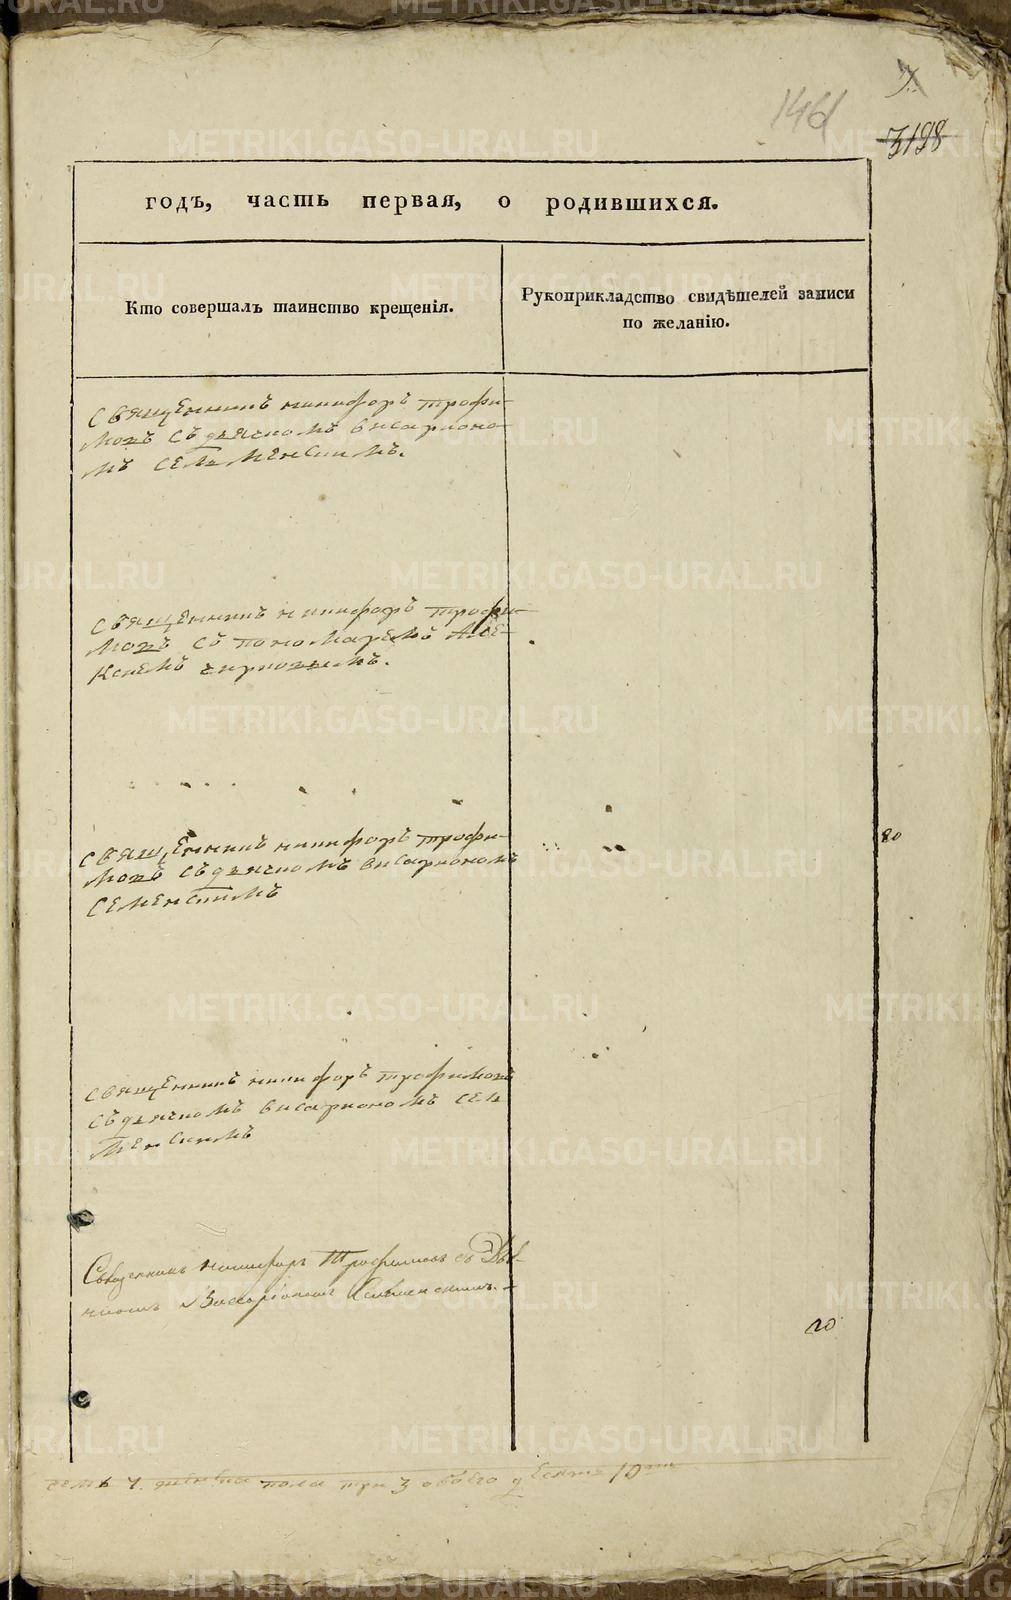 146
3198
годъ, часть первая, о родившихся.
Кто совершалъ таинство крещенія.
Рукоприкладство свидѣтелей записи
по желанію.
священникъ никифоръ трофи-
мовъ съ дьячкомъ висарионо-
мъ семеменскимъ.
священникъ никифоръ трофи-
мовъ съ пономаремъ Але-
ксіемъ
священникъ никифоръ трофи-
мовъ съ дьячкомъ висариономъ
семенскимъ
80
священникъ никифоръ трофимовъ
съ дьячкомъ висариономъ сем
менскимъ
Священникъ Никифоръ Трофимовъ съ Дья-
чкомъ Висаріономъ
20
семь 7. женска пола три 3 обоего десять 10
METRIKI.GASO-URAL.RU